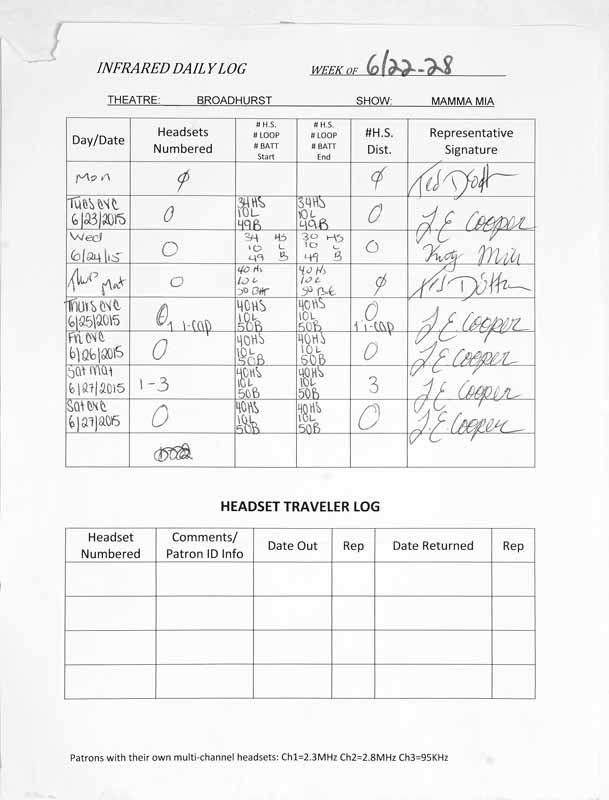 INFRARED DAILY LOG WEEK OF 6/22-28
THEATRE: BROADHURST SHOW: MAMMA MIA
Day/Date
Headsets
Numbered
# H.S.
# LOOP
# BATT
Start
# H.S.
# LOOP
# BATT
End
#H.S.
Dist.
Representative
Signature
Mon ∅ ∅
Tues eve
6/23/2015
0
34HS
10L
49B
34HS
10L
49B
0
L E Cooper
Wed
6/24/15
0
34 HS
10 L
49 B
30 HS
10 L
49 B
0
Thur
Mat
0
40 HS
10 L
50 Bat
40 HS
10 L
50 Bat
∅
Thurs eve
6/25/2015
0
1 i-cap
40HS
10L
50B
40HS
10L
50B
0
1 i-cap
L E Cooper
Fri eve
6/26/2015
0
40HS
10L
50B
40HS
10L
50B
0
L E Cooper
Sat mat
6/27/2015
1-3
40HS
10L
50B
40HS
10L
50B
3
L E Cooper
Sat eve
6/27/2015
0
40HS
10L
50B
40HS
10L
50B
0
L E Cooper
HEADSET TRAVELER LOG
Headset
Numbered
Comments/
Patron ID Info
Date Out
Rep
Date Returned
Rep
Patrons with their own multi-channel headsets: Ch1=2.3MHz Ch2=2.8MHz Ch3=95KHz